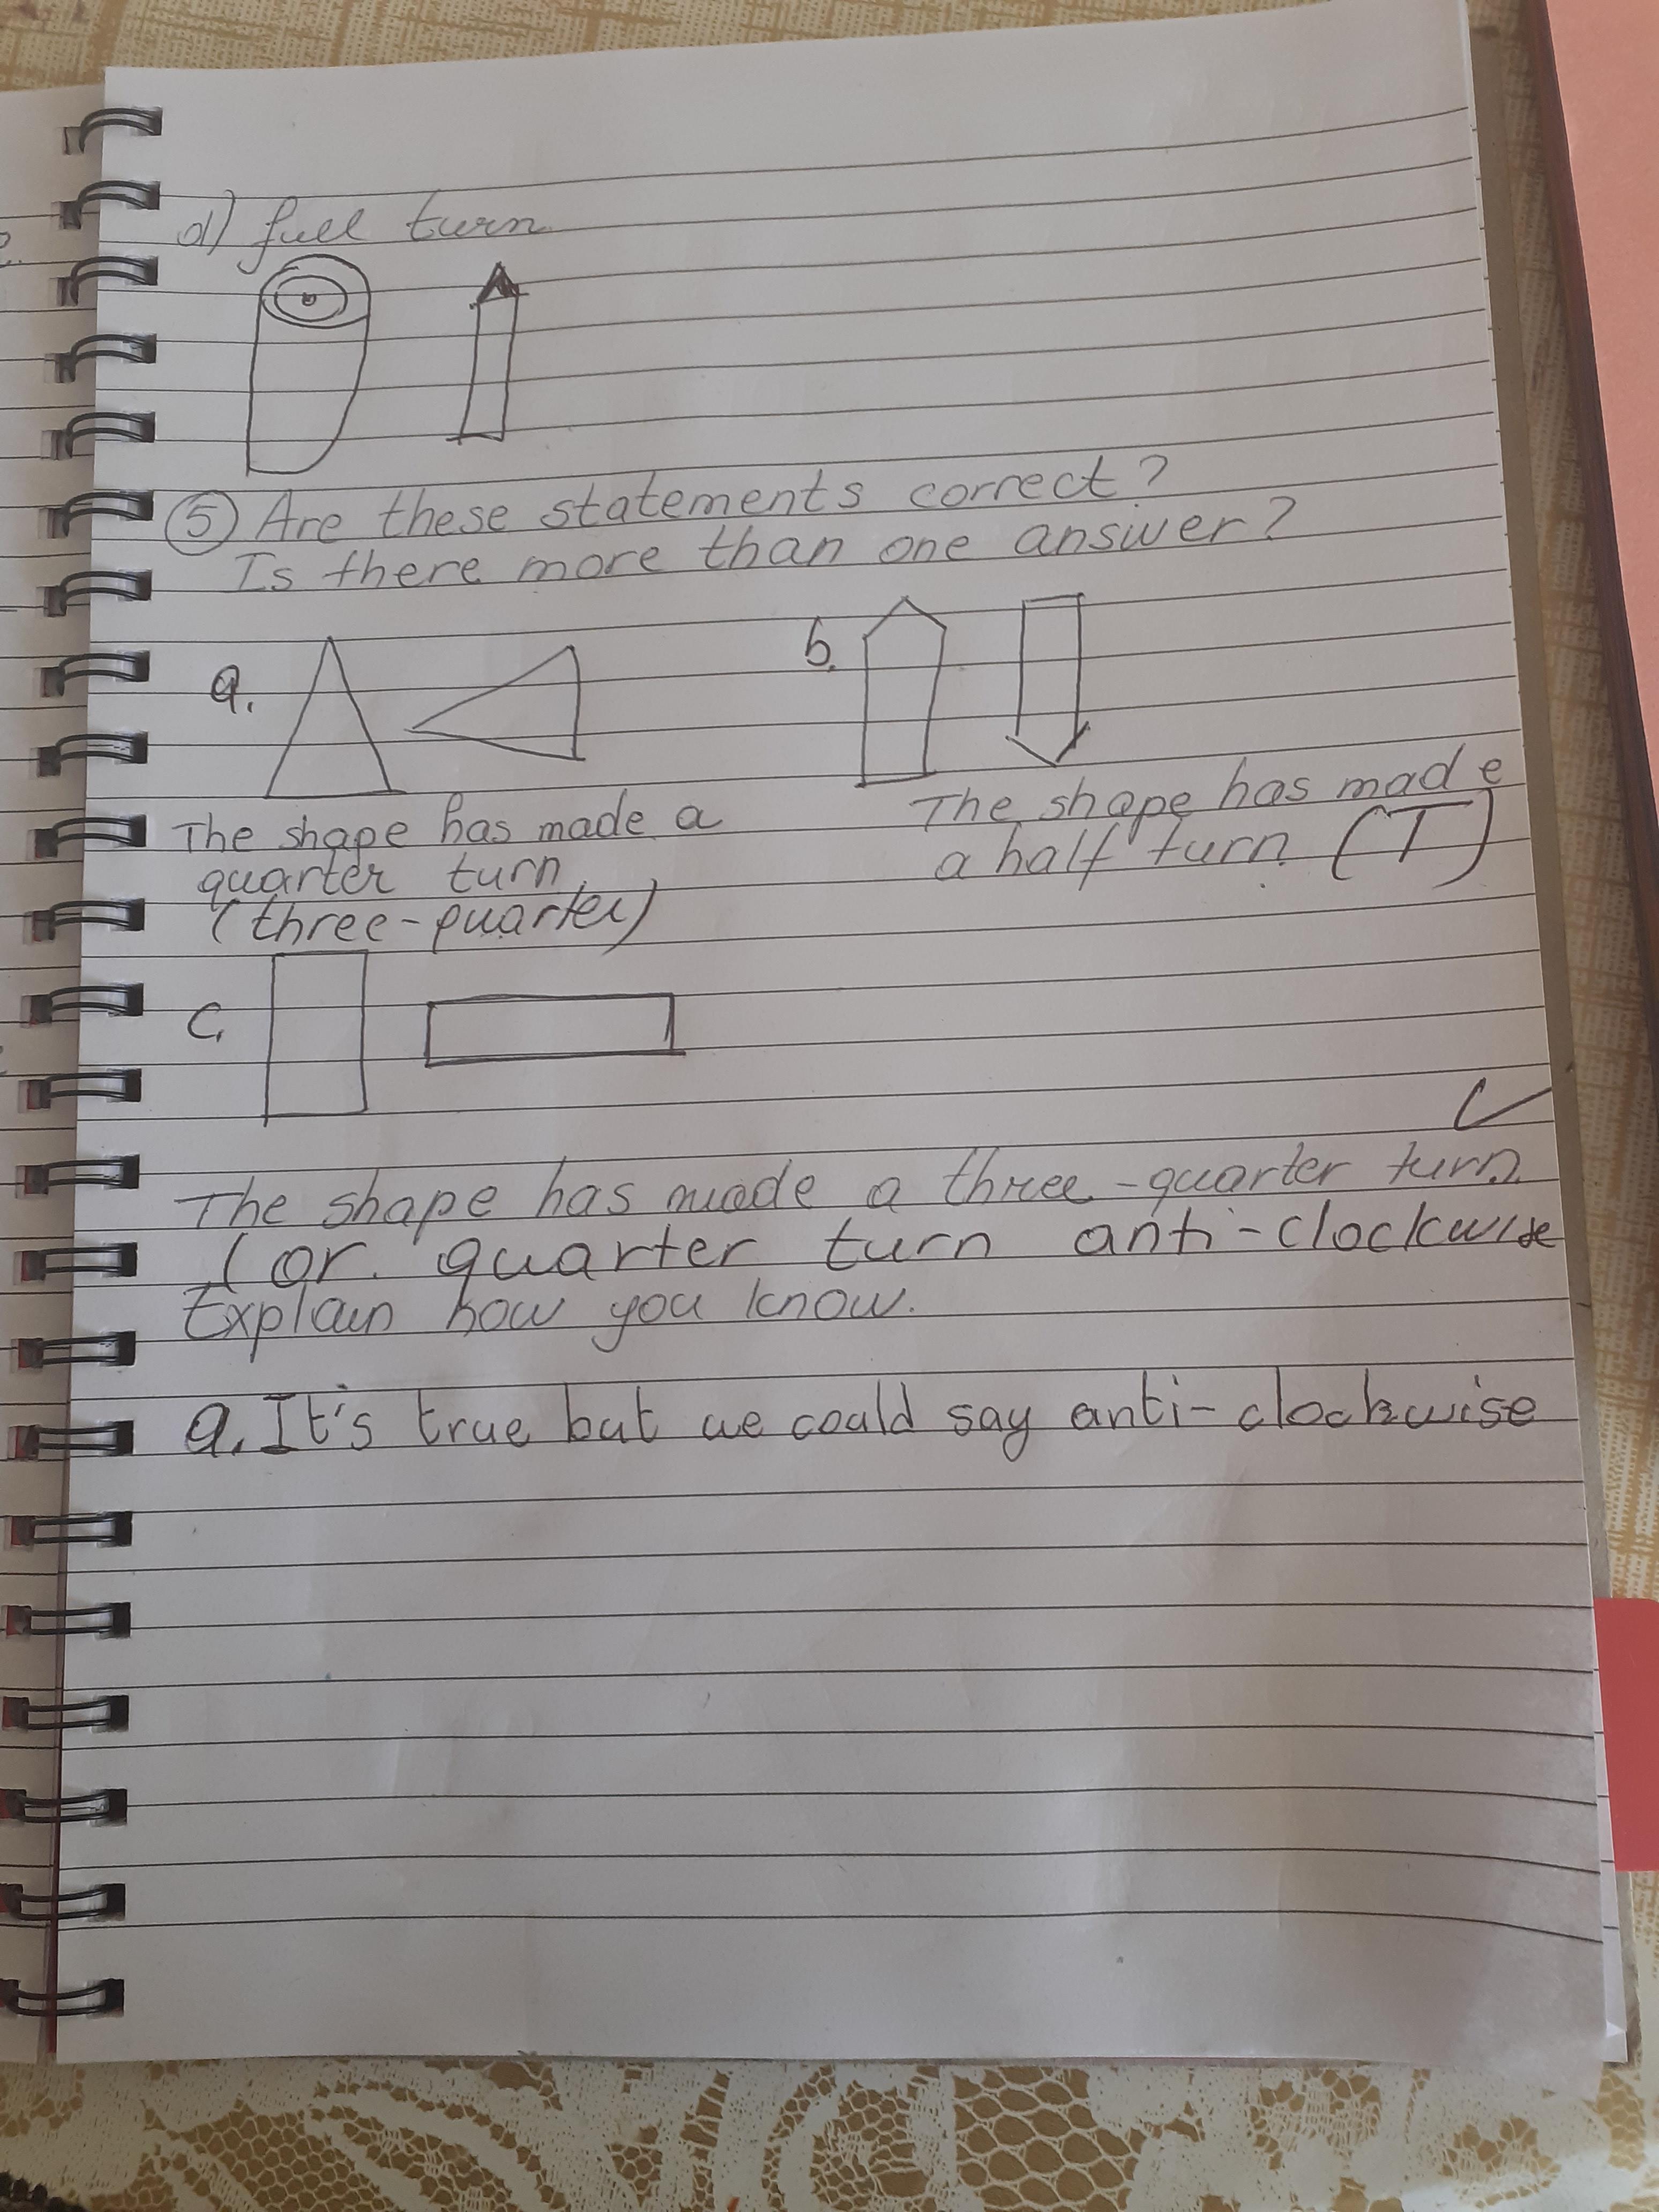 d) full turn
⑤ Are these statements correct?
Is there more than one answer?
a.
b.
The shape has made a
quarter turn.
(three-quarter)
The shape has made
a half turn. (T)
c.
The shape has made a three-quarter turn.
(or quarter turn anti-clockwise
Explain how you know.
a. It's true but we could say anti-clockwise